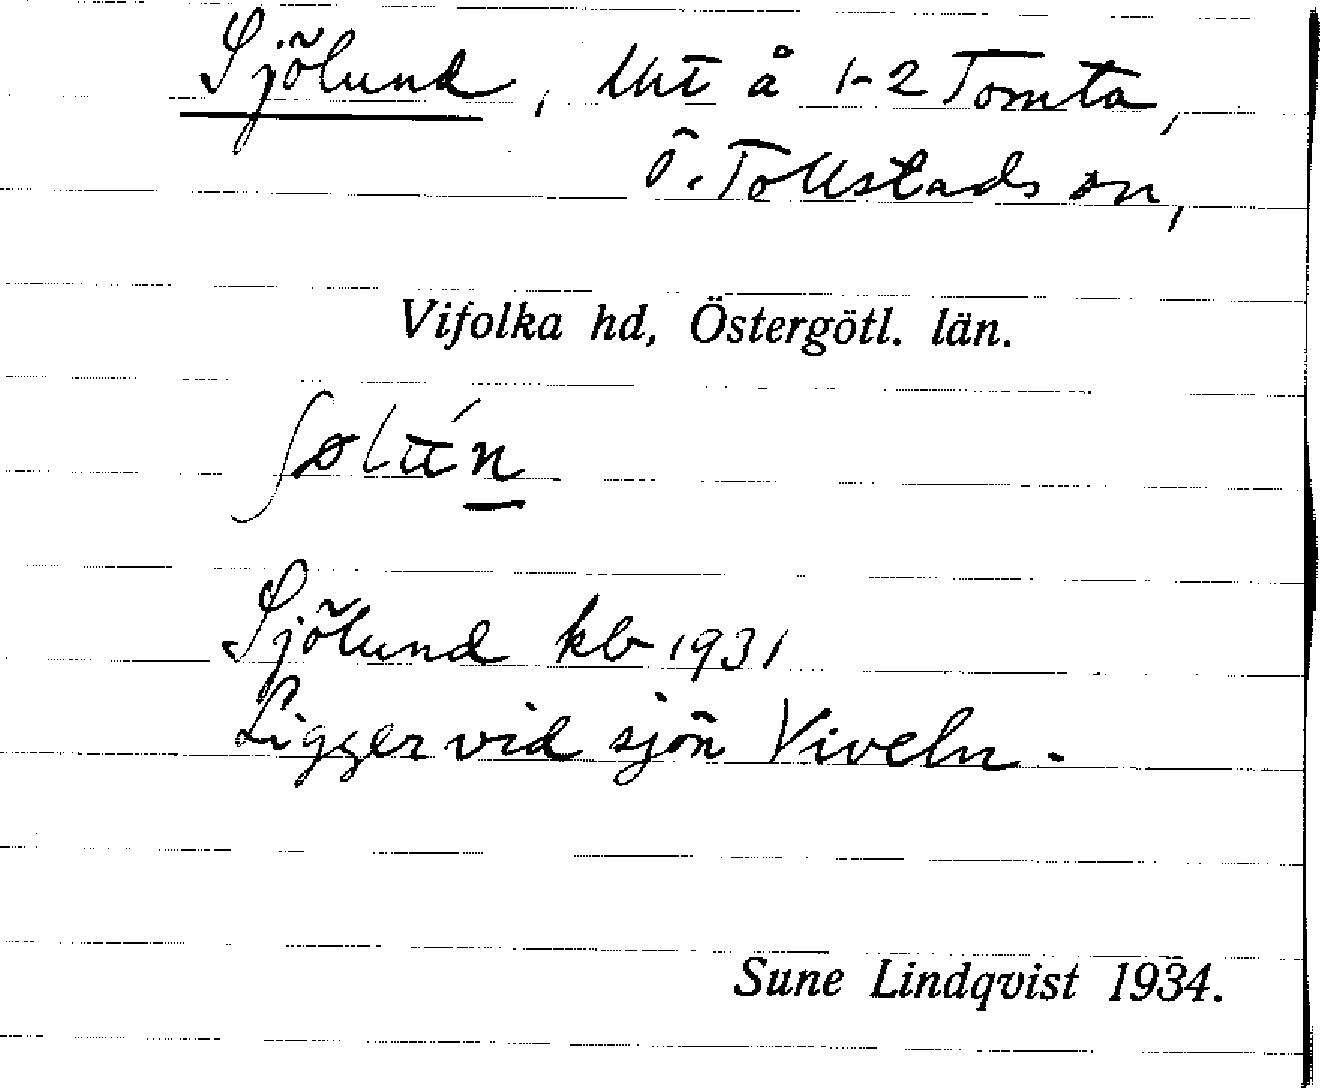 Sjölund, lht å 1-2 Tomta,
Ö. Tollstads sn,
Vifolka hd, Östergötl. län.
Sjölund kb 1931
Ligger vid sjön Viveln.
Sune Lindqvist 1934.